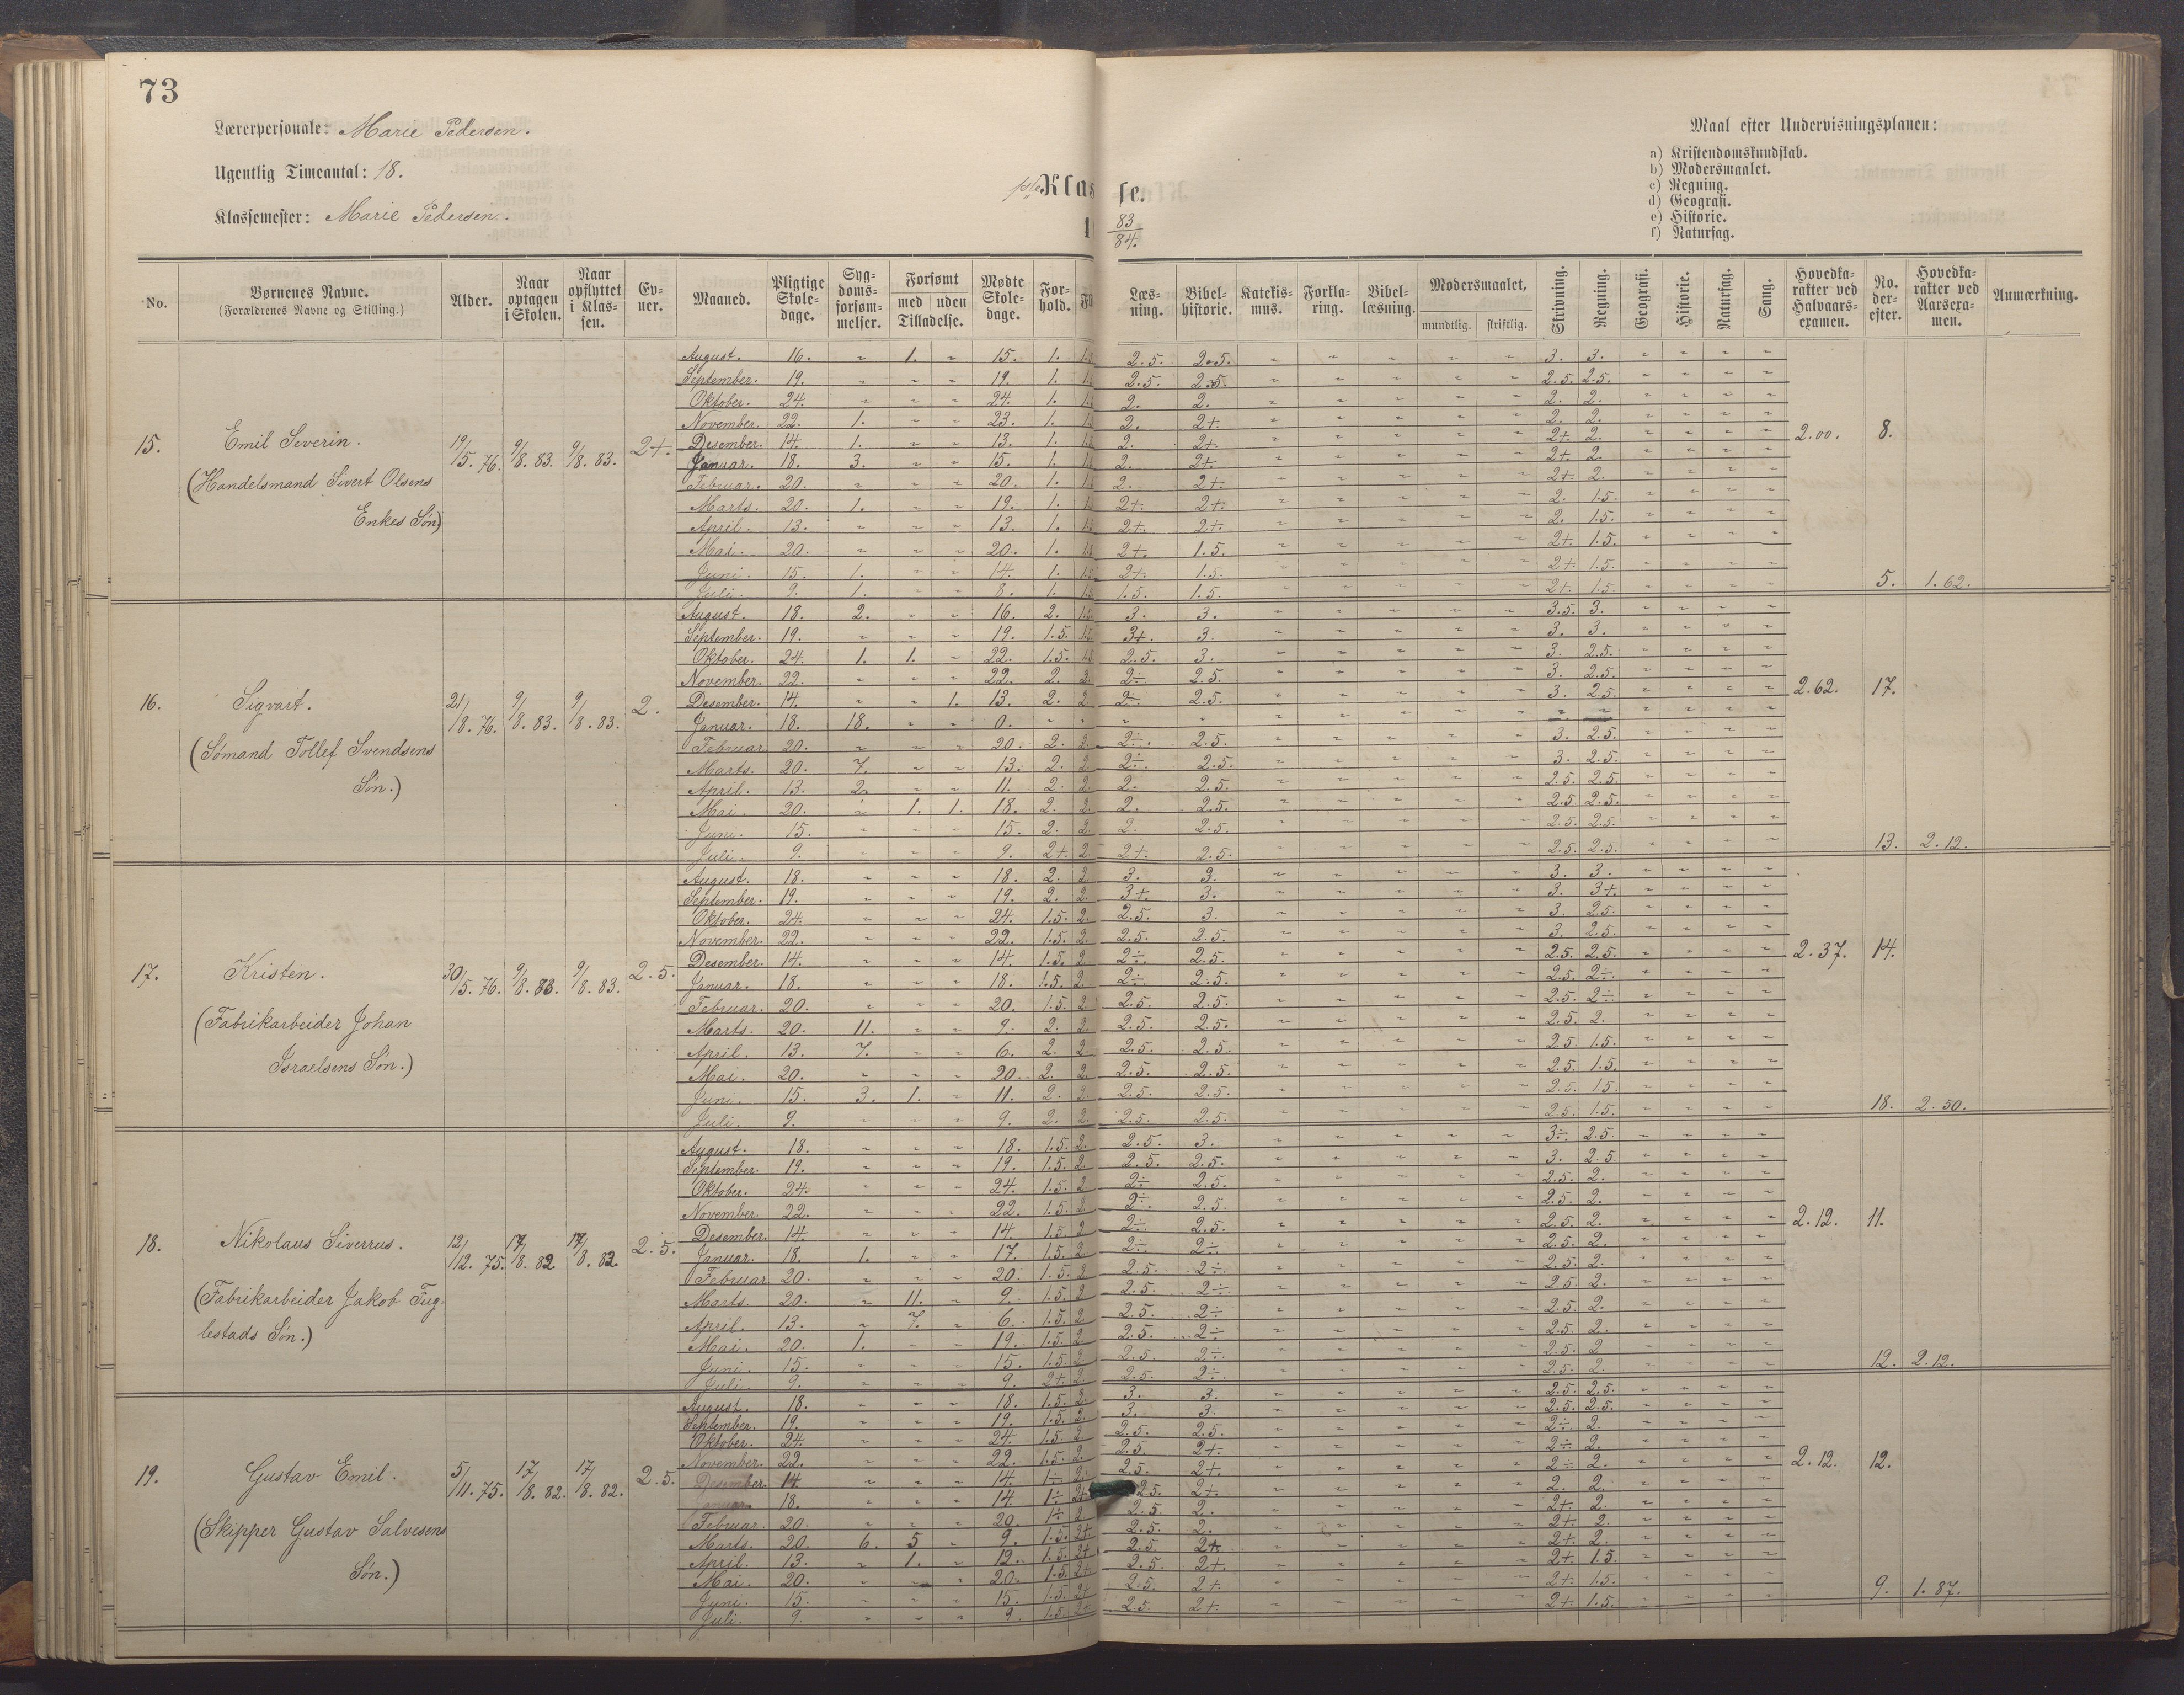 73
Lærerpersonale: Marie Pedersen.
Ugentlig Timeantal: 18.
Klassemester: Marie Pedersen.
1ste Klasse.
18 83/84.
Maal efter Undervisningsplanen:
a) Kristendomskundskab.
b) Modersmaalet.
c) Regning.
d) Geografi.
e) Historie.
f) Naturfag.
No. | Børnenes Navne. (Forældrenes Navne og Stilling.) | Alder. | Naar optagen i Skolen. | Naar opflyttet i Klassen. | Evner. | Maaned. | Pligtige Skoledage. | Sygdomsforsømmelser. | Forsømt med / uden Tilladelse. | Mødte Skoledage. | Forhold. | Fl | Læsning. | Bibelhistorie. | Katekismus. | Forklaring. | Bibellæsning. | Modersmaalet, mundtlig. / skriftlig. | Skrivning. | Regning. | Geografi. | Historie. | Naturfag. | Sang. | Hovedkarakter ved Halvaarsexamen. | No. derefter. | Hovedkarakter ved Aarsexamen. | Anmærkning.
15. Emil Severin. 19/5. 76. 9/8. 83. 9/8. 83. 2+. 2.00. 8.
(Handelsmand Sivert Olsens
Enkes Søn)
August. 16. " 1. " 15. 1. 2.5. 2.5. 3. 3.
September. 19. " " " 19. 1. 2.5. 2.5. 2.5. 2.5.
Oktober. 24. " " " 24. 1. 2. 2. 2. 2.
November. 22. 1. " " 23. 1. 2. 2+ 2. 2.
Desember. 14. 1. " " 13. 1. 2. 2+ 2+. 2.
Januar. 18. 3. " " 15. 1. 2. 2+. 2+. 2.
Februar. 20. " " " 20. 1. 2. 2+. 2+. 2.
Marts. 20. 1. " " 19. 1. 2+ 2+. 2. 1.5.
April. 13. " " " 13. 1. 2+. 2+. 2. 1.5.
Mai. 20. " " " 20. 1. 2+. 1.5. 2+. 1.5.
Juni. 15. 1. " " 14. 1. 2+. 1.5. 2+. 1.5.
Juli. 9. 1. " " 8. 1. 1.5. 1.5. 2+. 1.5. 5. 1.62.
16. Sigvart. 21/8. 76. 9/8. 83. 9/8. 83. 2. 2.62. 17.
(Sømand Tollef Svendsens
Søn.)
August. 18. 2. " " 16. 2. 3. 3. 3.5. 3.
September. 19. " " " 19. 1.5. 3+. 3. 3. 3.
Oktober. 24. 1. 1. " 22. 1.5. 2.5. 3. 3. 2.5.
November. 22. " " " 22. 2. 2 2÷ 2.5. 3. 2.5.
Desember. 14. " " 1. 13. 2. 2 2÷ 2.5. 3. 2.5.
Januar. 18. 18. " " 0. " " " " " "
Februar. 20. " " " 20. 2. 2 2÷. 2.5. 3. 2.5.
Marts. 20. 7. " " 13. 2. 2 2÷. 2.5. 3. 2.5.
April. 13. 2. " " 11. 2. 2 2. 2.5. 2.5. 2.5.
Mai. 20. " 1. 1. 18. 2. 2. 2. 2.5. 2.5. 2.5.
Juni. 15. " " " 15. 2. 2. 2. 2.5. 2.5. 2.5.
Juli. 9. " " " 9. 2+. 2. 2+. 2.5. 2.5. 2.5. 13. 2.12.
17. Kristen. 30/5. 76. 9/8. 83. 9/8. 83. 2.5. 2.37. 14.
(Fabrikarbeider Johan
Israelsens Søn.)
August. 18. " " " 18. 2. 2 3. 3. 3. 3.
September. 19. " " " 19. 2. 2. 3+. 3. 3. 3+.
Oktober. 24. " " " 24. 1.5. 2. 2.5. 3. 3. 2.5.
November. 22. " " " 22. 1.5. 2. 2.5. 2.5. 3. 2.5.
Desember. 14. " " " 14. 1.5. 2. 2÷. 2.5. 2.5. 2.5.
Januar. 18. " " " 18. 1.5. 2. 2÷ 2.5. 2.5. 2÷
Februar. 20. " " " 20. 1.5. 2 2.5. 2.5. 2.5. 2÷
Marts. 20. 11. " " 9. 2. 2. 2.5. 2.5. 2.5. 2.
April. 13. 7. " " 6. 2. 2. 2.5. 2.5. 2.5. 1.5.
Mai. 20. " " " 20. 2. 2. 2.5. 2.5. 2.5. 1.5.
Juni. 15. 3. 1. " 11. 2. 2. 2.5. 2.5. 2.5. 1.5.
Juli. 9. " " " 9. 2. 2. 2.5. 2.5. 2.5. 1.5. 18. 2.50.
18. Nikolaus Siverrus. 12/12. 75. 17/8. 82 17/8. 82. 2.5. 2.12. 11.
(Fabrikarbeider Jakob Fug-
lestads Søn.)
August. 18. " " " 18. 1.5. 2. 2.5. 3. 3÷. 2.5.
September. 19. " " " 19. 1.5. 2 2.5. 2.5. 3. 2.5.
Oktober. 24. " " " 24. 1.5. 2 2÷ 2.5. 2.5. 2.
November. 22. " " " 22. 1.5. 2 2÷. 2.5. 2.5. 2.
Desember. 14. " " " 14. 1.5. 2 2÷ 2.5. 2.5. 2.
Januar. 18. 1. " " 17. 1.5. 2 2÷. 2÷ 2.5. 2.
Februar 20. " " " 20. 1.5. 2 2.5. 2÷. 2.5. 2.
Marts. 20. " 11. " 9. 1.5. 2 2.5. 2÷ 2.5. 2.
April. 13. " 7. " 6. 1.5. 2. 2.5. 2÷ 2.5. 2.
Mai. 20. 1. " " 19. 1.5. 2 2.5. 2÷ 2.5. 2.
Juni. 15. " " " 15. 1.5. 2. 2.5. 2÷ 2.5. 2
Juli. 9. " " " 9. 2+. 2. 2.5. 2÷ 2.5. 2. 12. 2.12.
19. Gustav Emil. 5/11. 75. 17/8. 82. 17/8. 82. 2.5. 2.12. 12.
(Skipper Gustav Salvesens
Søn.)
August. 18. " " " 18. 1.5. 2. 3. 3. 2.5. 2.5.
September. 19. " " " 19. 1.5. 2. 3. 3. 2.5. 2.5.
Oktober. 24. " " " 24. 1.5. 2 2.5. 2.5. 2÷ 2.
November. 22. " " " 22. 1.5. 2. 2.5. 2+. 2÷ 2.
Desember. 14. " " " 14. 1÷. 2. 2.5. 2+. 2÷ 2.
Januar. 18. " " " 14. 1÷ 2+ 2.5. 2+. 2. 2.
Februar. 20. " " " 20. 1÷ 2 2.5. 2. 2+. 2.
Marts. 20. 6. 5 " 9. 1.5. 2+ 2.5. 2. 2+. 2.
April. 13. " 1. " 12. 1.5. 2+ 2.5. 2+ 2+. 2.
Mai. 20. " " " 20. 1.5. 2+ 2.5. 2+. 2+. 1.5.
Juni. 15. " " " 15. 1.5. 2+ 2.5. 2+. 2+. 1.5.
Juli. 9. " " " 9 1.5. 2+ 2.5. 2+. 2+. 1.5. 9. 1.87.